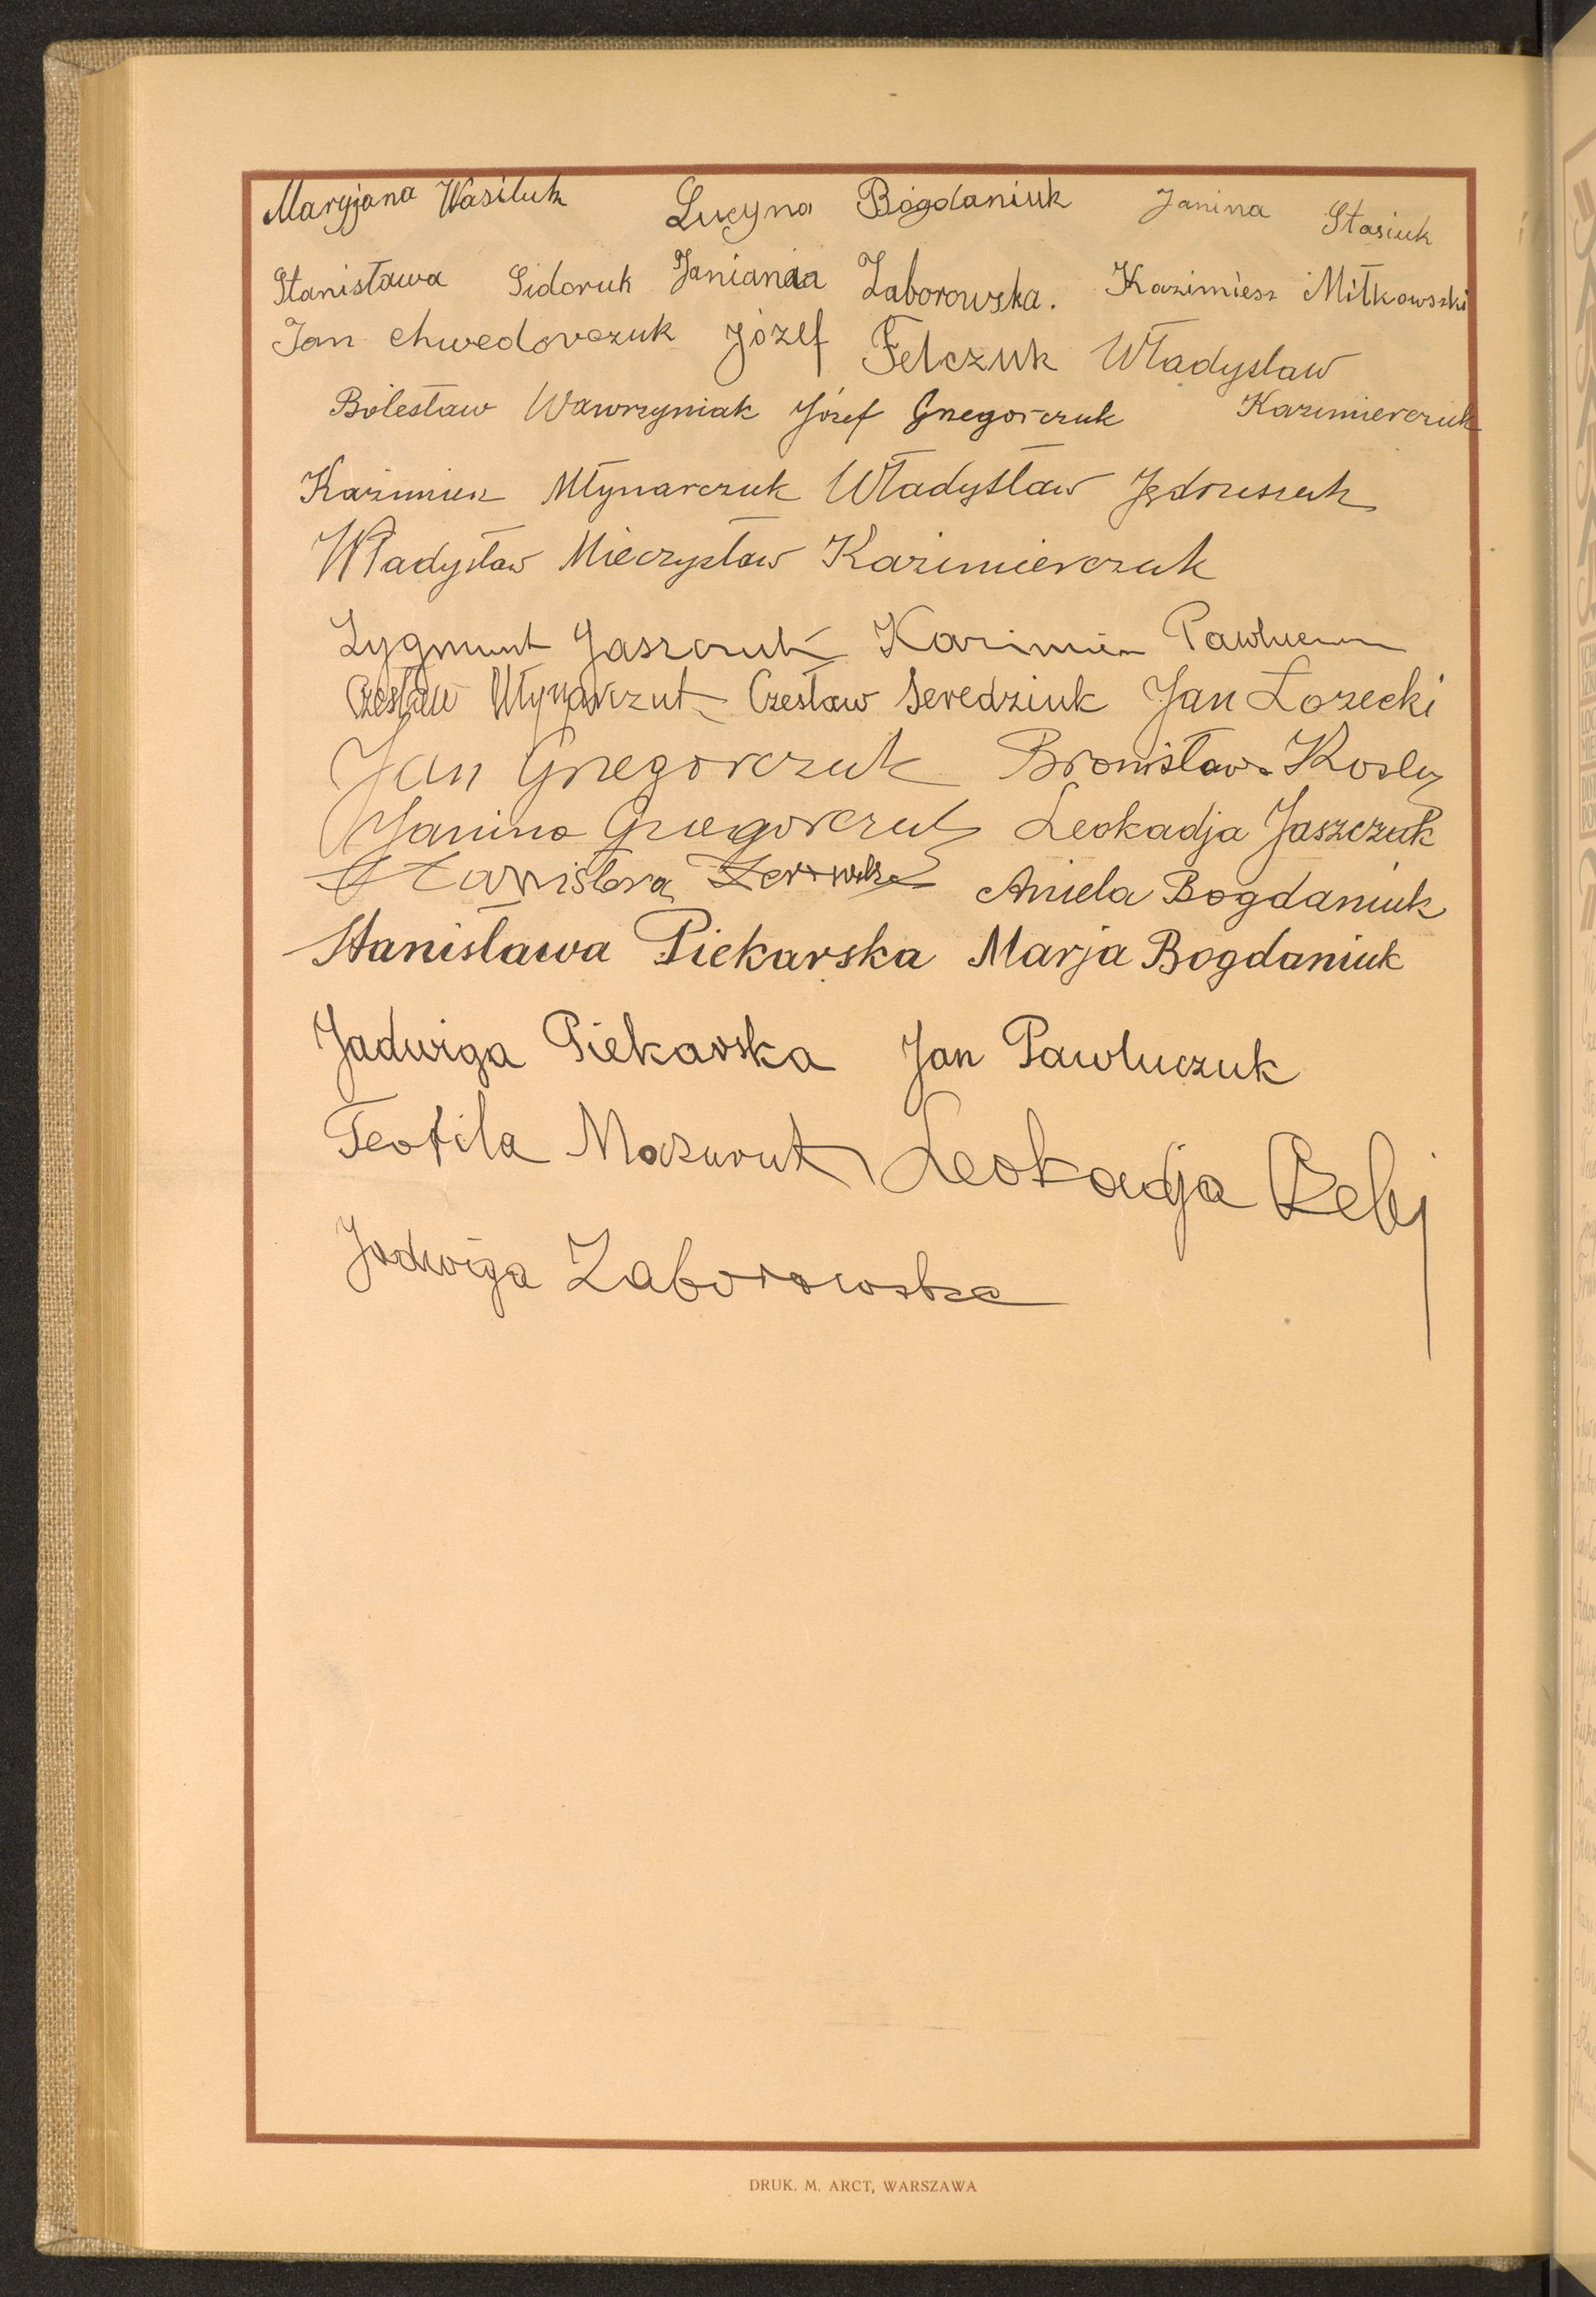 Maryjana Wasiluk Lucyna Bogdaniuk Janina Stasiuk
Stanisława Sidoruk Janianaia Zaborowska. Kazimiesz Miłkowsski
Jan Chwedorczuk Józef Felczuk Władysław
Bolesław Wawrzyniak Józef Gregorczuk Kazimierczuk
Kazimierz Młynarczuk Władysław
Władysław Mieczysław Kazimierczuk
Zygmunt Jaszczuk Kazimierz
Czesław Młynarczuk Czesław Seredziuk Jan Łozecki
Jan Gregorczuk Bronisław
Janina Gregorczuk Leokadja Jaszczuk
Stanisława Aniela Bogdaniuk
Stanisława Piekarska Marja Bogdaniuk
Jadwiga Piekarska Jan Pawluczuk
Teofila Mazuruk Leokadja
Jadwiga Zaborowska
DRUK. M. ARCT, WARSZAWA